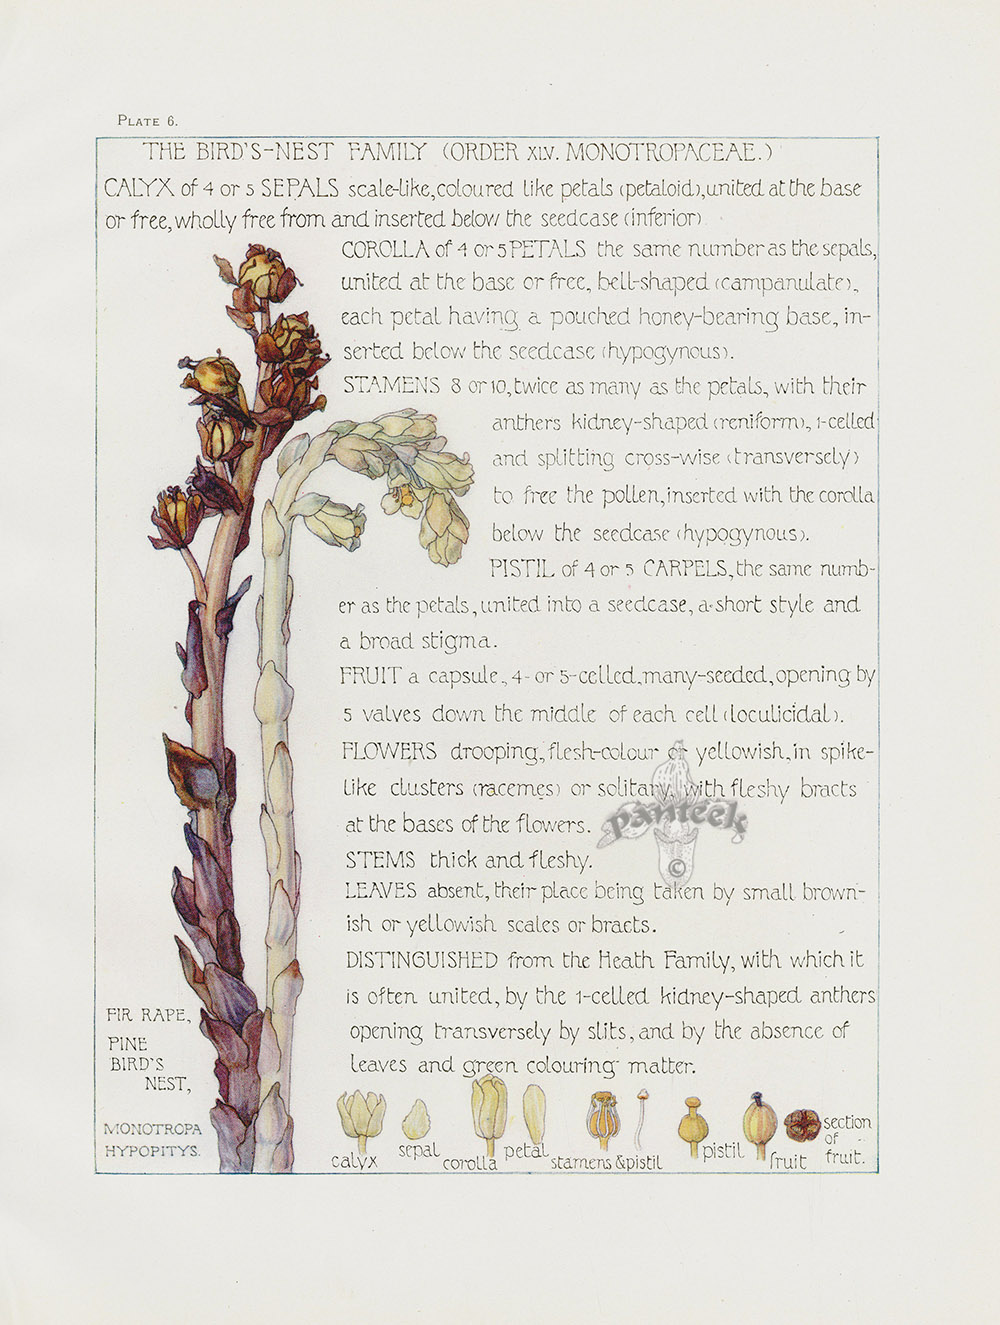 PLATE 6.
THE BIRD'S-NEST FAMILY (ORDER XLV. MONOTROPACEAE.)
CALYX of 4 or 5 SEPALS scale-like, coloured like petals (petaloid), united at the base
or free, wholly free from and inserted below the seedcase (inferior).
COROLLA of 4 or 5 PETALS the same number as the sepals,
united at the base or free, bell-shaped (campanulate),
each petal having a pouched honey-bearing base, in-
serted below the seedcase (hypogynous).
STAMENS 8 or 10, twice as many as the petals, with their
anthers kidney-shaped (reniform), 1-celled
and splitting cross-wise (transversely)
to free the pollen, inserted with the corolla
below the seedcase (hypogynous).
PISTIL of 4 or 5 CARPELS, the same numb-
er as the petals, united into a seedcase, a short style and
a broad stigma.
FRUIT a capsule, 4- or 5-celled, many-seeded, opening by
5 valves down the middle of each cell (loculicidal).
FLOWERS drooping, flesh-colour or yellowish, in spike-
like clusters (racemes) or solitary, with fleshy bracts
at the bases of the flowers.
panteek
©
STEMS thick and fleshy.
LEAVES absent, their place being taken by small brown-
ish or yellowish scales or bracts.
DISTINGUISHED from the Heath Family, with which it
is often united, by the 1-celled kidney-shaped anthers
opening transversely by slits, and by the absence of
leaves and green colouring matter.
FIR RAPE,
PINE
BIRD'S
NEST,
MONOTROPA
HYPOPITYS.
calyx
sepal
corolla
petal
stamens & pistil
pistil
fruit
section
of
fruit.